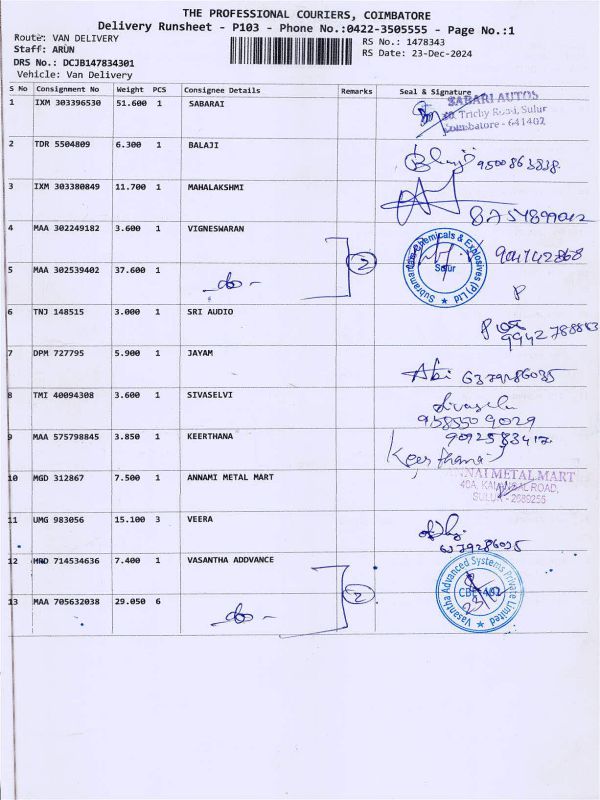 THE PROFESSIONAL COURIERS, COIMBATORE
Delivery Runsheet - P103 - Phone No.:0422-3505555 - Page No.:1
Route: VAN DELIVERY
Staff: ARUN
DRS No.: DCJB147834301
Vehicle: Van Delivery
RS No.: 1478343
RS Date: 23-Dec-2024
S No Consignment No Weight PCS Consignee Details Remarks Seal & Signature
1 IXM 303396530 51.600 1 SABARAI
SABARI AUTOS
Trichy Road, Sulur
Coimbatore - 641402
2 TDR 5504809 6.300 1 BALAJI
Balaji 9500863838
3 IXM 303380849 11.700 1 MAHALAKSHMI
4 MAA 302249182 3.600 1 VIGNESWARAN
Subramaniam Chemicals & Explosives (P) Ltd
Sulur
5 MAA 302539402 37.600 1 -do- 2
6 TNJ 148515 3.000 1 SRI AUDIO
7 DPM 727795 5.900 1 JAYAM
Abi 6379286035
8 TMI 40094308 3.600 1 SIVASELVI
Sivaselvi
9585509029
9 MAA 575798845 3.850 1 KEERTHANA
Keerthana
10 MGD 312867 7.500 1 ANNAMI METAL MART
ANNAI METAL MART
40A, ROAD,
SULUR - 2689255
11 UMG 983056 15.100 3 VEERA
6379286035
12 MRD 714534636 7.400 1 VASANTHA ADDVANCE
Vasantha Advanced Systems Private Limited
13 MAA 705632038 29.050 6 -do- 2